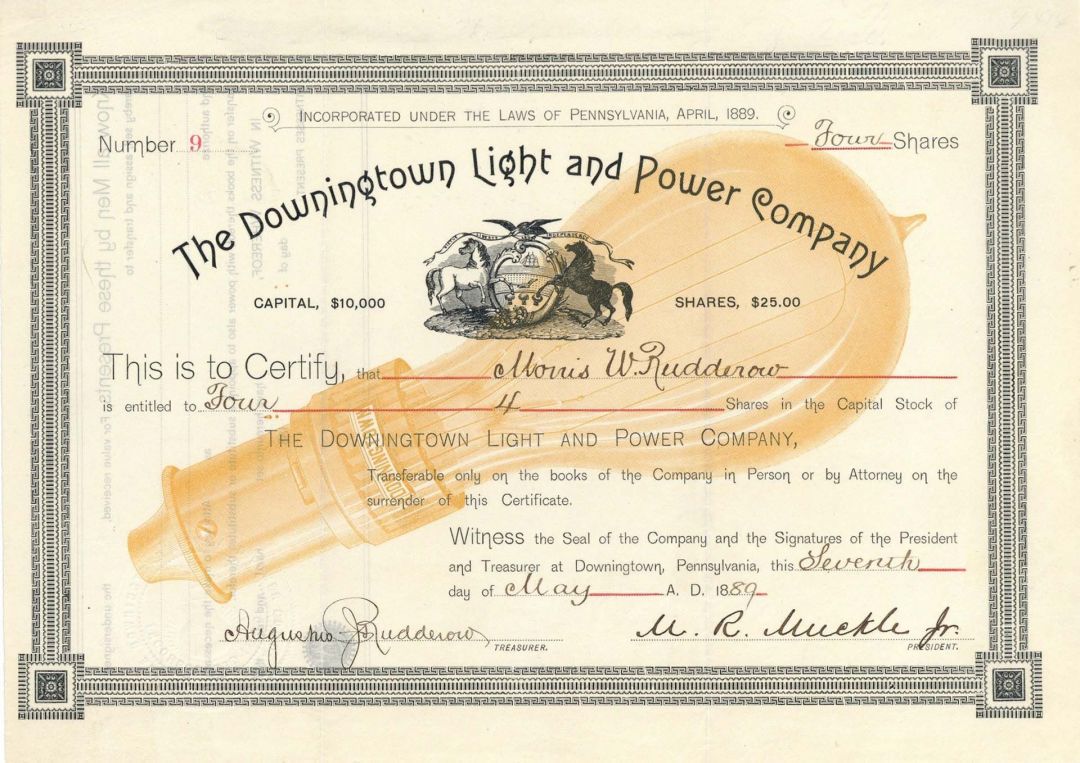 INCORPORATED UNDER THE LAWS OF PENNSYLVANIA, APRIL, 1889.
Number 9
Four Shares
The Downingtown Light and Power Company
VIRTUE LIBERTY INDEPENDENCE
CAPITAL, $10,000
SHARES, $25.00
This is to Certify, that Morris W. Rudderow
is entitled to Four 4 Shares in the Capital Stock of
THE DOWNINGTOWN LIGHT AND POWER COMPANY,
Transferable only on the books of the Company in Person or by Attorney on the
surrender of this Certificate.
Witness the Seal of the Company and the Signatures of the President
and Treasurer at Downingtown, Pennsylvania, this Seventh
day of May A. D. 1889
Rudderow
TREASURER.
M. R. Muckle Jr.
PRESIDENT.